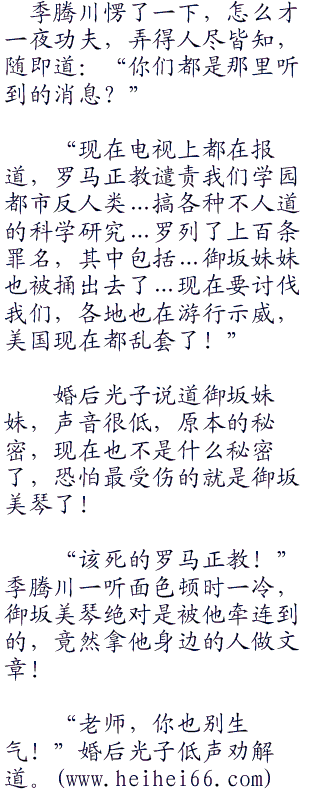 季腾川愣了一下，怎么才
一夜功夫，弄得人尽皆知，
随即道：“你们都是那里听
到的消息？”
“现在电视上都在报
道，罗马正教谴责我们学园
都市反人类…搞各种不人道
的科学研究…罗列了上百条
罪名，其中包括…御坂妹妹
也被捅出去了…现在要讨伐
我们，各地也在游行示威，
美国现在都乱套了！”
婚后光子说道御坂妹
妹，声音很低，原本的秘
密，现在也不是什么秘密
了，恐怕最受伤的就是御坂
美琴了！
“该死的罗马正教！”
季腾川一听面色顿时一冷，
御坂美琴绝对是被他牵连到
的，竟然拿他身边的人做文
章！
“老师，你也别生
气！”婚后光子低声劝解
道。(www.heihei66.com)